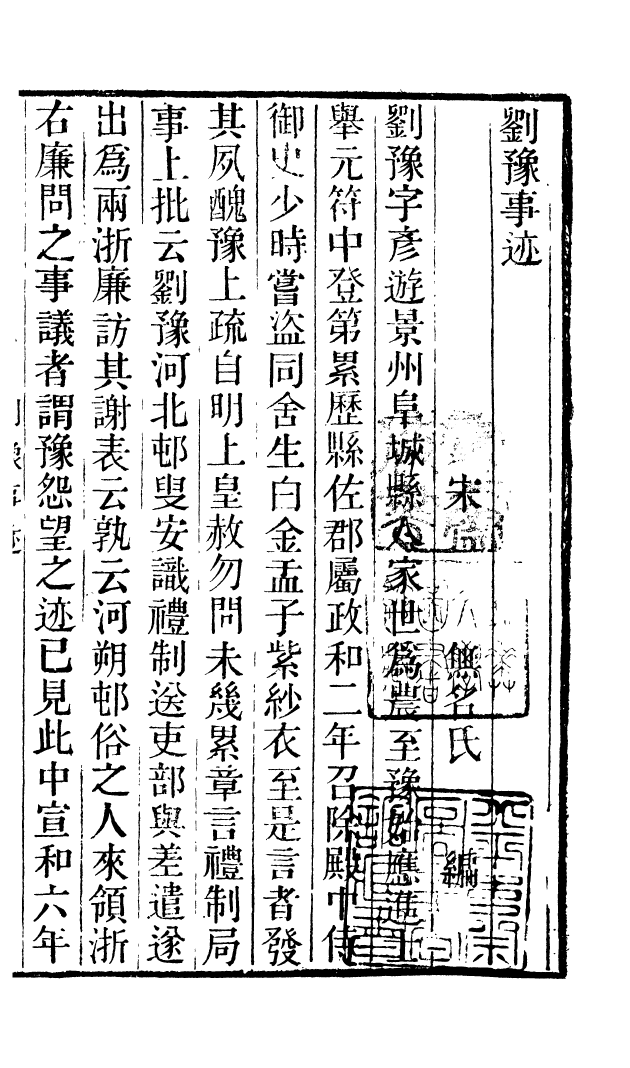 劉豫事迹
宋 無名氏 編
劉豫字彥遊景州阜城縣人家世爲農至豫始應進士
舉元符中登第累歷縣佐郡屬政和二年召除殿中侍
御史少時嘗盜同舍生白金盂子紫紗衣至是言者發
其夙醜豫上疏自明上皇赦勿問未幾累章言禮制局
事上批云劉豫河北邨叟安識禮制送吏部與差遣遂
出爲兩浙廉訪其謝表云孰云河朔邨俗之人來領浙
右廉問之事議者謂豫怨望之迹已見此中宣和六年
劉豫事迹